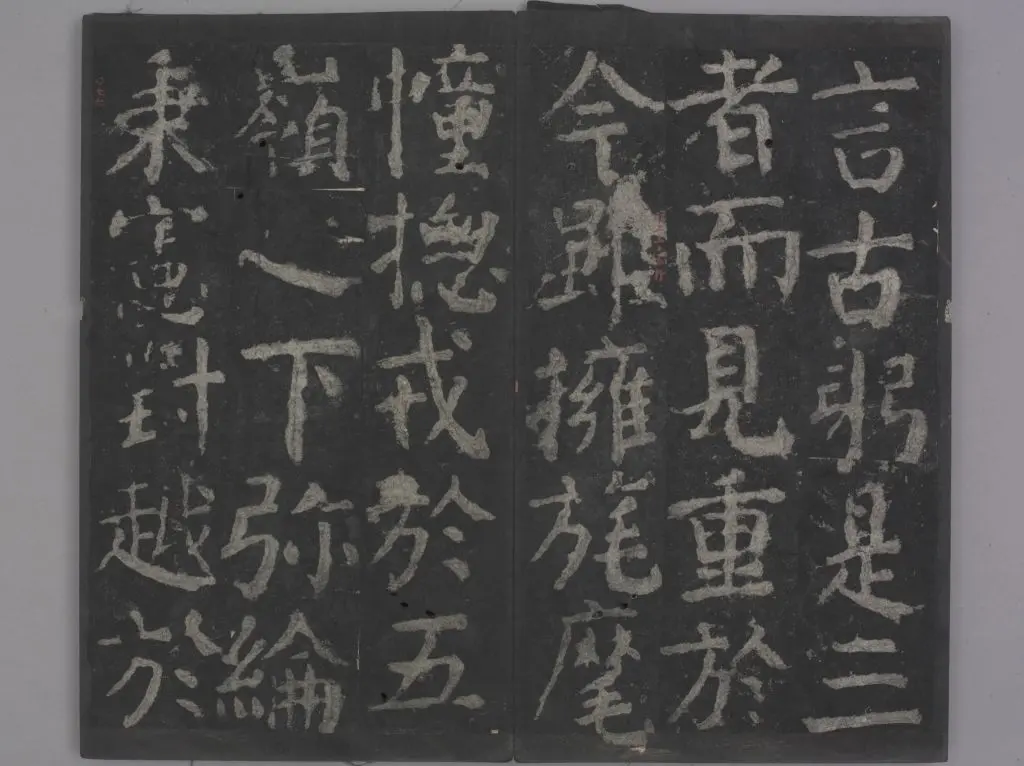 言古躬是三
者而見重於
今雖擁旄麾
幢摠戎於五
嶺之下弥綸
秉憲對越於